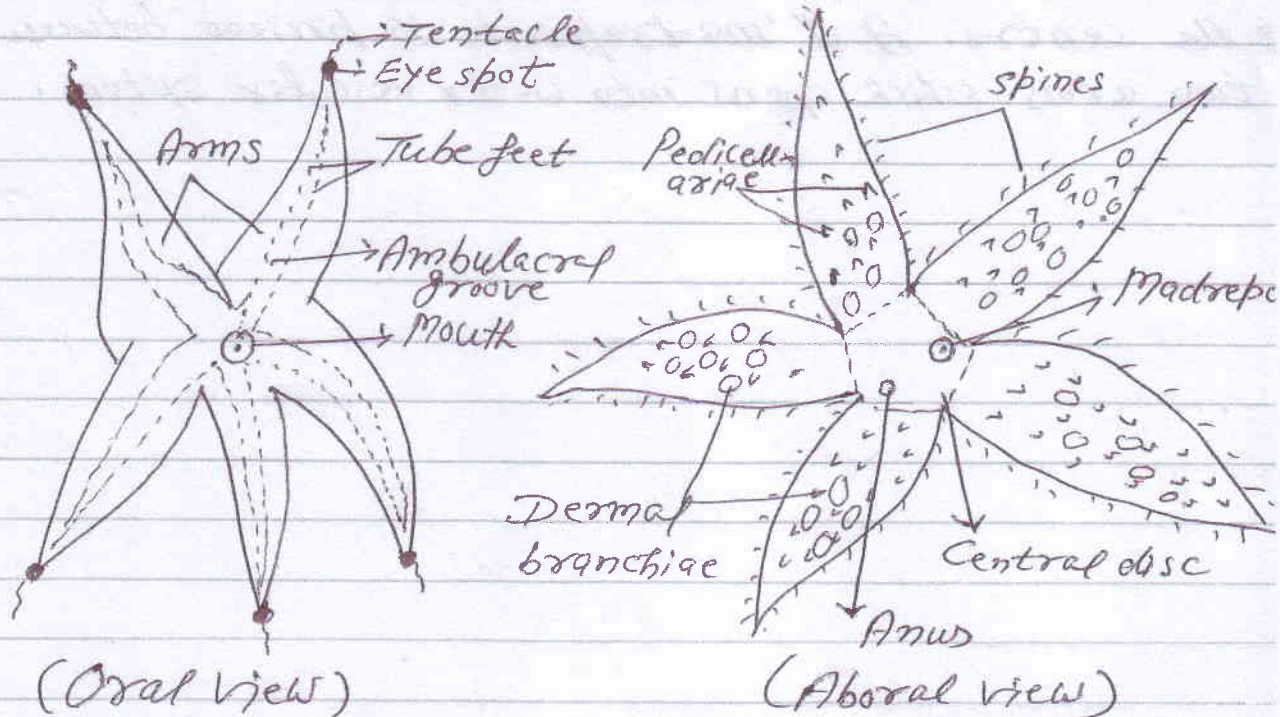 Tentacle
Eye spot
Arms
Tube feet
Ambulacral
groove
Mouth
(Oral view)
spines
Pedicell-
ariae
Madrepo
Dermal
branchiae
Central disc
Anus
(Aboral view)